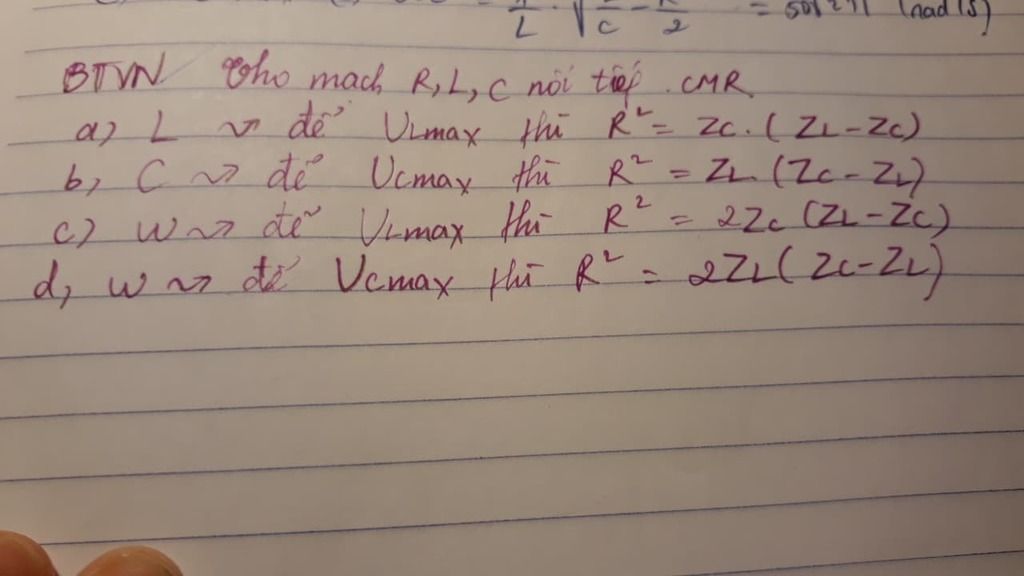 = 50√2π (rad/s)
BTVN Cho mạch R, L, C nối tiếp. CMR
a) L ~> để ULmax thì R² = ZC. (ZL - ZC)
b, C ~> để UCmax thì R² = ZL (ZC - ZL)
c) W ~> để ULmax thì R² = 2ZC (ZL - ZC)
d, W ~> để UCmax thì R² = 2ZL (ZC - ZL)